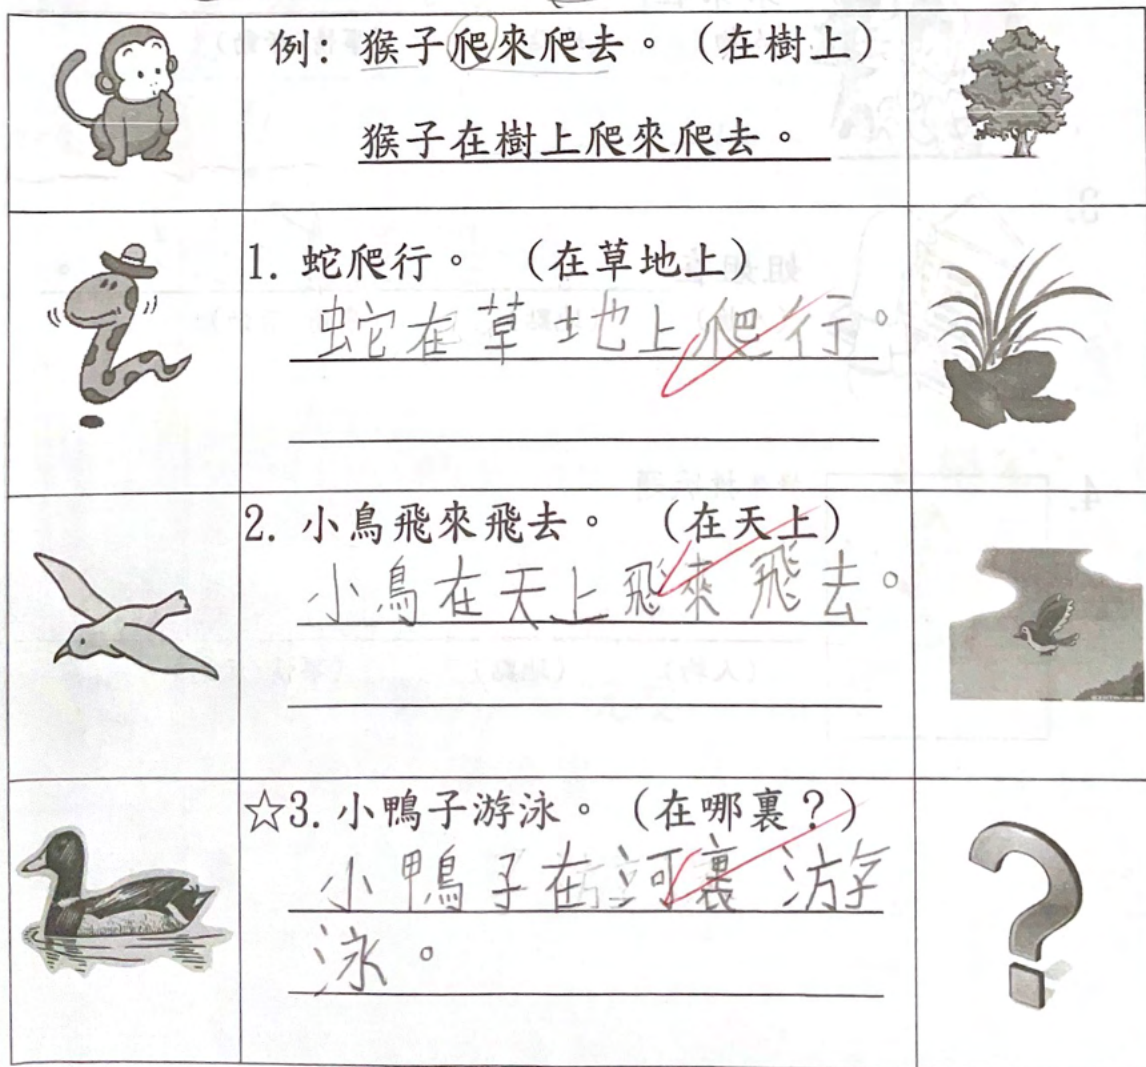 例：猴子爬來爬去。（在樹上）
猴子在樹上爬來爬去。
1. 蛇爬行。（在草地上）
蛇在草地上爬行。
2. 小鳥飛來飛去。（在天上）
小鳥在天上飛來飛去。
☆3. 小鴨子游泳。（在哪裏？）
小鴨子在河裏游
泳。